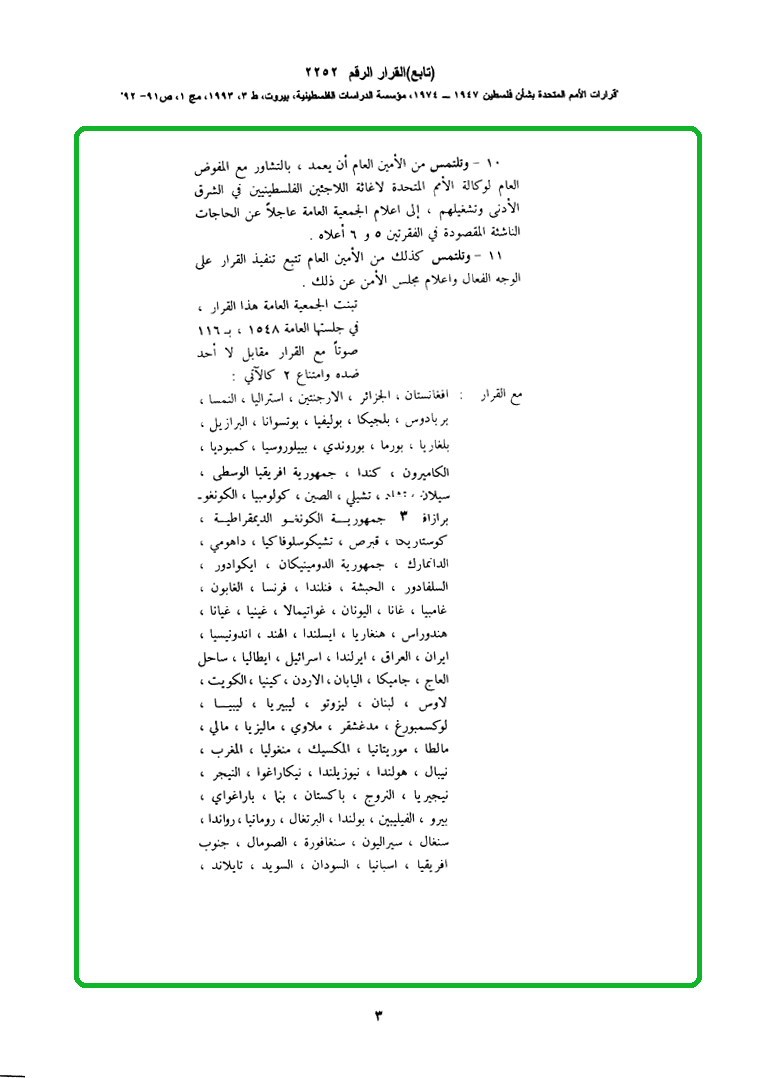 (تابع)القرار الرقم ٢٢٥٢
"قرارات الأمم المتحدة بشأن فلسطين ١٩٤٧ – ١٩٧٤، مؤسسة الدراسات الفلسطينية، بيروت، ط ٣، ١٩٩٣، مج ١، ص٩١- ٩٢"
١٠ – وتلتمس من الأمين العام أن يعمد ، بالتشاور مع المفوض
العام لوكالة الأمم المتحدة لاغاثة اللاجئين الفلسطينيين في الشرق
الأدنى وتشغيلهم ، إلى اعلام الجمعية العامة عاجلاً عن الحاجات
الناشئة المقصودة في الفقرتين ٥ و ٦ أعلاه .
١١ – وتلتمس كذلك من الأمين العام تتبع تنفيذ القرار على
الوجه الفعال واعلام مجلس الأمن عن ذلك .
تبنت الجمعية العامة هذا القرار ،
في جلستها العامة ١٥٤٨ ، بـ ١١٦
صوتاً مع القرار مقابل لا أحد
ضده وامتناع ٢ كالآتي :
مع القرار : افغانستان ، الجزائر ، الارجنتين ، استراليا ، النمسا ،
بربادوس ، بلجيكا ، بوليفيا ، بوتسوانا ، البرازيل ،
بلغاريا ، بورما ، بوروندي ، بييلوروسيا ، كمبوديا ،
الكاميرون ، كندا ، جمهورية افريقيا الوسطى ،
سيلان ، تشاد ، تشيلي ، الصين ، كولومبيا ، الكونغو-
برازاف ٣ جمهوريـة الكونغـو الديمقراطيـة ،
كوستاريكا ، قبرص ، تشيكوسلوفاكيا ، داهومي ،
الدانمارك ، جمهورية الدومينيكان ، ايكوادور ،
السلفادور ، الحبشة ، فنلندا ، فرنسا ، الغابون ،
غامبيا ، غانا ، اليونان ، غواتيمالا ، غينيا ، غيانا ،
هندوراس ، هنغاريا ، ايسلندا ، الهند ، اندونيسيا ،
ايران ، العراق ، ايرلندا ، اسرائيل ، ايطاليا ، ساحل
العاج ، جاميكا ، اليابان ، الاردن ، كينيا ، الكويت ،
لاوس ، لبنان ، ليزوتو ، ليبيريا ، ليبيـا ،
لوكسمبورغ ، مدغشقر ، ملاوي ، ماليزيا ، مالي ،
مالطا ، موريتانيا ، المكسيك ، منغوليا ، المغرب ،
نيبال ، هولندا ، نيوزيلندا ، نيكاراغوا ، النيجر ،
نيجيريا ، النروج ، باكستان ، بنما ، باراغواي ،
بيرو ، الفيليبين ، بولندا ، البرتغال ، رومانيا ، رواندا ،
سنغال ، سيراليون ، سنغافورة ، الصومال ، جنوب
افريقيا ، اسبانيا ، السودان ، السويد ، تايلاند ،
٣